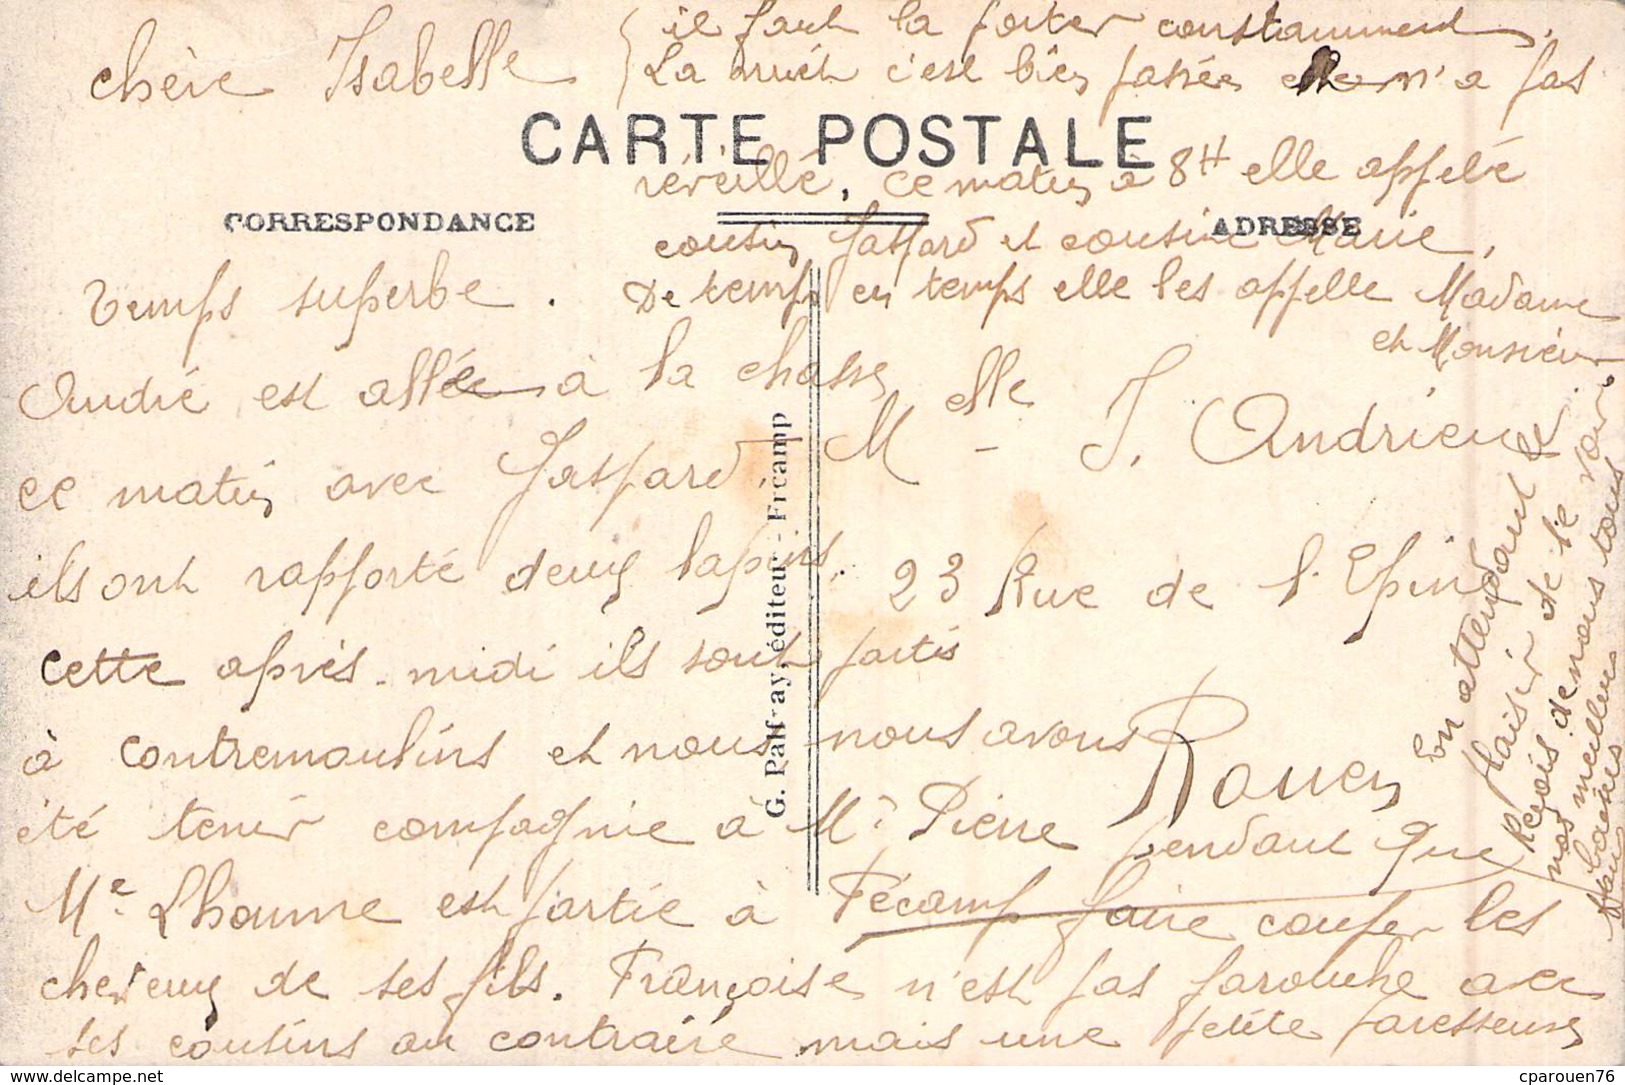 chère Isabelle
CARTE POSTALE
CORRESPONDANCE
ADRESSE
Temps superbe.
André est allée à la chasse
ce matin avec Gaspard
ils ont rapporté deux lapins.
cette après-midi ils sont partis
à Contremoulins et nous nous avons
été tenir compagnie à Mr Pierre pendant que
Me Lhomme est partie à Fécamp faire couper les
cheveux de ses fils. Françoise n'est pas farouche avec
ses cousins au contraire mais une petite paresseuse
il faut la porter constamment.
La nuit c'est bien passée elle n'a pas
réveillé, ce matin à 8H elle appelé
cousin Gaspard et cousine Marie,
De temps en temps elle les appelle Madame
et Monsieur
Melle - I. Andrieux
23 Rue de l'Epine
Rouen
En attendant le
plaisir de te voir,
Reçois de nous tous
nos meilleurs
baisers
G. Palfray, éditeur - Fécamp
cparouen76
www.delcampe.net